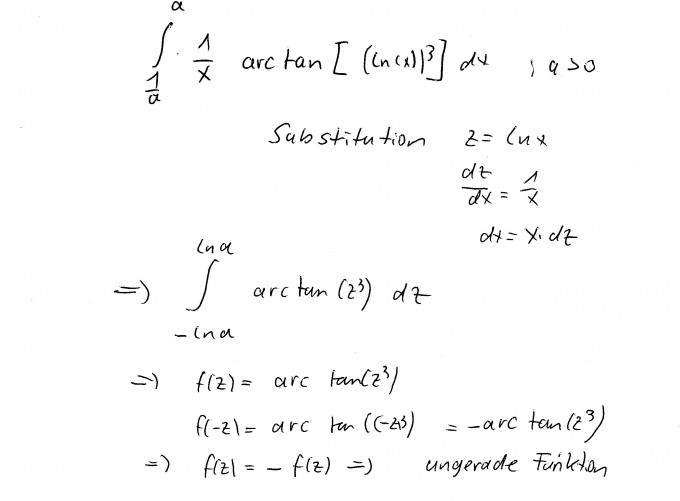 ∫_{1/a}^{a} 1/x arc tan [ (ln(x))³ ] dx ; a>0
Substitution z = ln x
dz/dx = 1/x
dx = x · dz
=> ∫_{-ln a}^{ln a} arc tan (z³) dz
=> f(z) = arc tan(z³)
f(-z) = arc tan ((-z)³) = -arc tan (z³)
=> f(z) = - f(z) => ungerade Funktion